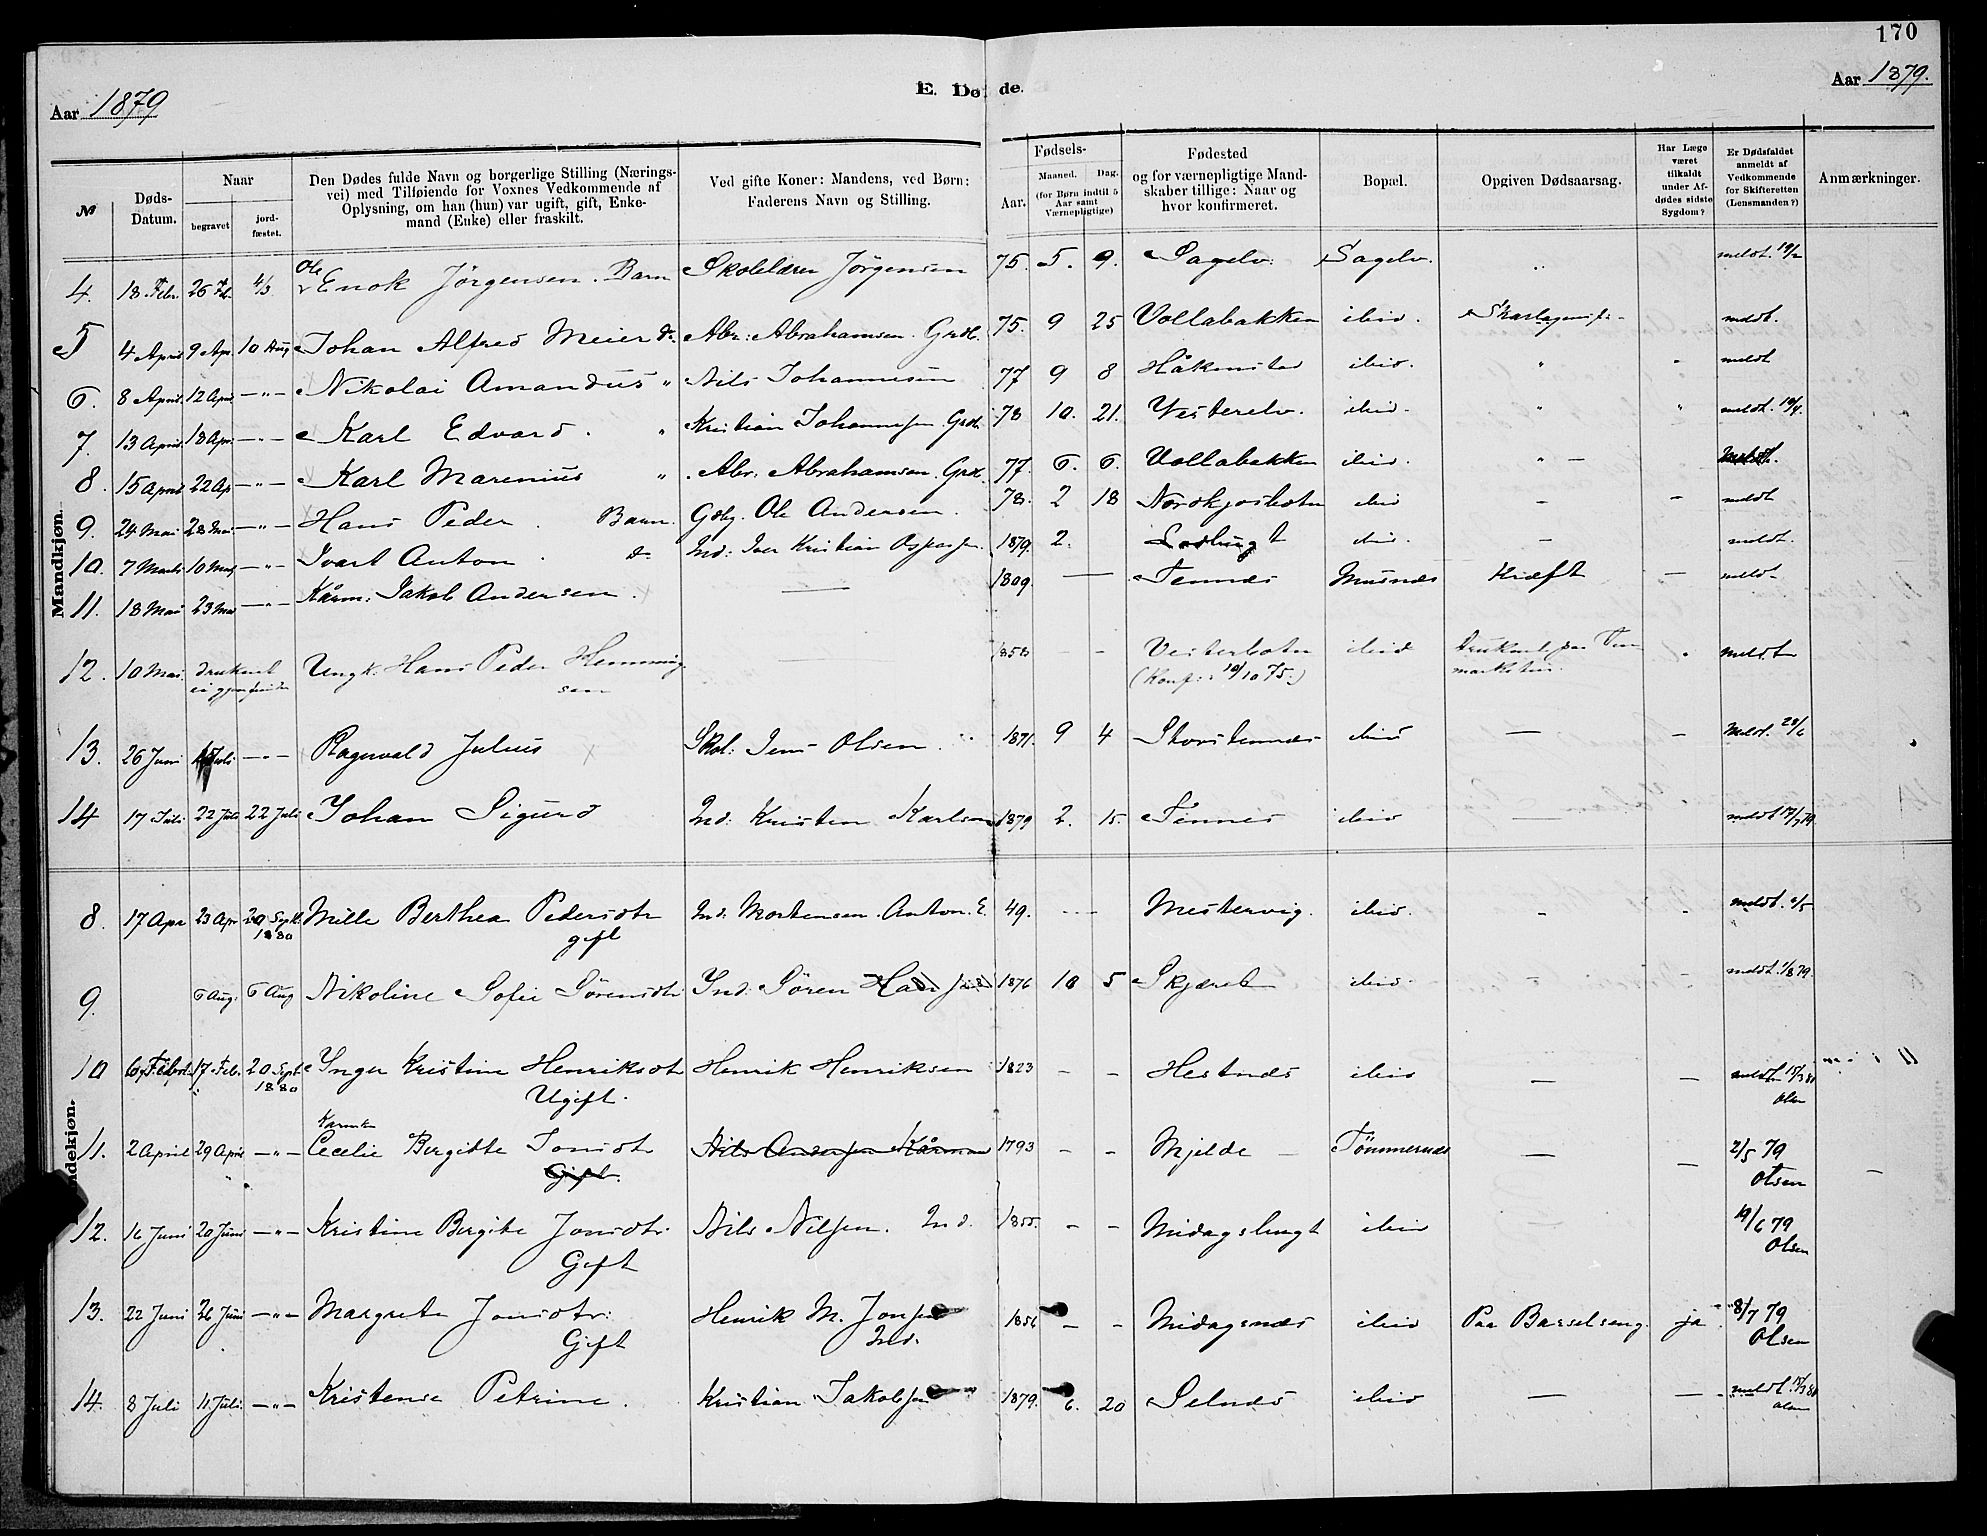 170
Aar 1879
E. Dø de.
Aar 1879.
№ Døds-Datum. Naar begravet jord-fæstet. Den Dødes fulde Navn og borgerlige Stilling (Nærings-vei) med Tilføiende for Voxnes Vedkommende af Oplysning, om han (hun) var ugift, gift, Enke-mand (Enke) eller fraskilt. Ved gifte Koner: Mandens, ved Børn: Faderens Navn og Stilling. Fødsels- Aar. Maaned. Dag. (for Børn indtil 5 Aar samt Værnepligtige) Fødested og for værnepligtige Mand-skaber tillige: Naar og hvor konfirmeret. Bopæl. Opgiven Dødsaarsag. Har Læge været tilkaldt under Af-dødes sidste Sygdom? Er Dødsfaldet anmeldt af Vedkommende for Skifteretten (Lensmanden?) Anmærkninger.
Mandkjøn.
Ole
4. 18 Febr. 26 Feb. 4/3 Enok Jörgensen. Barn Skolelærer Jörgensen 75. 5. 9. Sagelv. Sagelv. " meldt. 19/2
5 4 April 9 Apr. 10 Aug Johan Alfred Meier do. Abr: Abrahamsen. Grdb. 75. 9 25 Vollabakken ibid. Skarlagensf. - meldt.
6. 8 April 12 Apr. - " - Nikolai Amandus " Nils Johannesen 77 9 8 Håkenstad ibid. " " meldt
7. 13 April 18 Apr. - " - Karl Edvard. " Kristian Johannesen Grdb. 78 10. 21. Vesterelv. ibid. " " meldt. 19/4.
8. 15 April 22 Ap - " - Karl Marenius " Abr. Abrahamsen. Grdb. 77. 6. 6. Vollabakken ibid. " - meldt.
9. 24 Mai 28 Mai - " - Hans Peder. Barn. Gdbg. Ole Andersen. 78. 2 18 Nordkjosbotn ibid - - meldt
10. 7 Marts 10 Mar - " - Ivart Anton. do Ind: Iver Kristian 1879. 2. ibid. - meldt.
11. 18 Mai 23 Mai - " - Kårm: Jakob Andersen. — 1809. — Tennes Musnæs Kræft - meldt.
12. 10 Mai. druknet Ungk. Hans Peder Hemming 1858 - - Vesterbotn ibid Druknet paa " meldt
ei gjenfunden sen (Konf: 10/10 75.)
13. 26 Juni Juli - " - Ragnvald Julius Skol: Jens Olsen. " 1871. 9 4 Storstennæs ibid — - Meldt. 28/6
14 17 Juli 22 Juli 22 Juli Johan Sigurd Ind: Kristen Karlsen 1879 2. 15. Tennes ibid — meldt 17/7 79.
8. 17 Apr 23 Apr 20 Sept. Mille Berthea Pedersdtr Ind. Mortensen. Anton. E. 49. - - - Mestervig. ibid. - - meldt. 1/5
1880 gift
9. 6 Aug. 6 Aug Nikoline Sofie Sörensdtr. Ind: Sören 1876 10 5 Skjæret ibid. - meldt. 1/8 79.
10 6 Febr. 17 Feb. 20 Sept. Inger Kristine Henriksdtr Henrik Henriksen 1823 - - Hestnæs ibid — — meldt 15/3 80
1880 Ugift. Olsen
11. 2 April 29 April - " - Cecelie Bergitte Jonsdtr Nils Andersen Kårman 1793 - - Mjelde - Tömmernæs — — 2/5 79
Gift. Olsen
12. 16 Juni 20 Juni - " - Kristine Bergite Jonsdtr. Nils Nilsen. Ind. 1855. - - Midagslungt ibid 19/6 79
Gift Olsen
13. 22 Juni 26 Juni - " - Margrete Jonsdtr: Henrik M. Jonsen 1856 - - Midagsnæs ibid Paa Barselseng. ja 8/7 79
Gift Ind. Olsen
14. 8 Juli 11 Juli. - " - Kristense Petrine. Kristian Jakobsen 1879. 6. 20 Selnæs ibid — - meldt.
Olsen